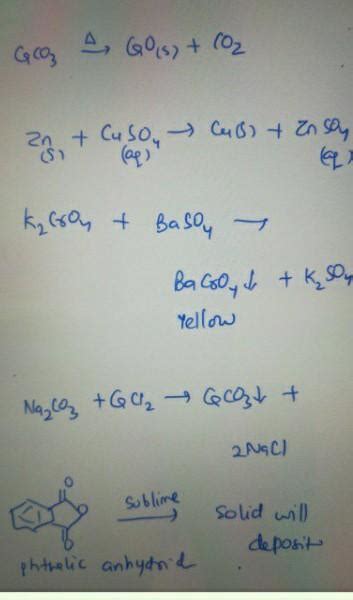 CaCO3 Δ→ CaO(s) + CO2
Zn + CuSO4 → Cu(s) + ZnSO4
(s) (aq) (aq)
K2CrO4 + BaSO4 →
BaCrO4↓ + K2SO4
Yellow
Na2CO3 + CaCl2 → CaCO3↓ +
2NaCl
O
O sublime→ solid will
O deposit
phthalic anhydrid .